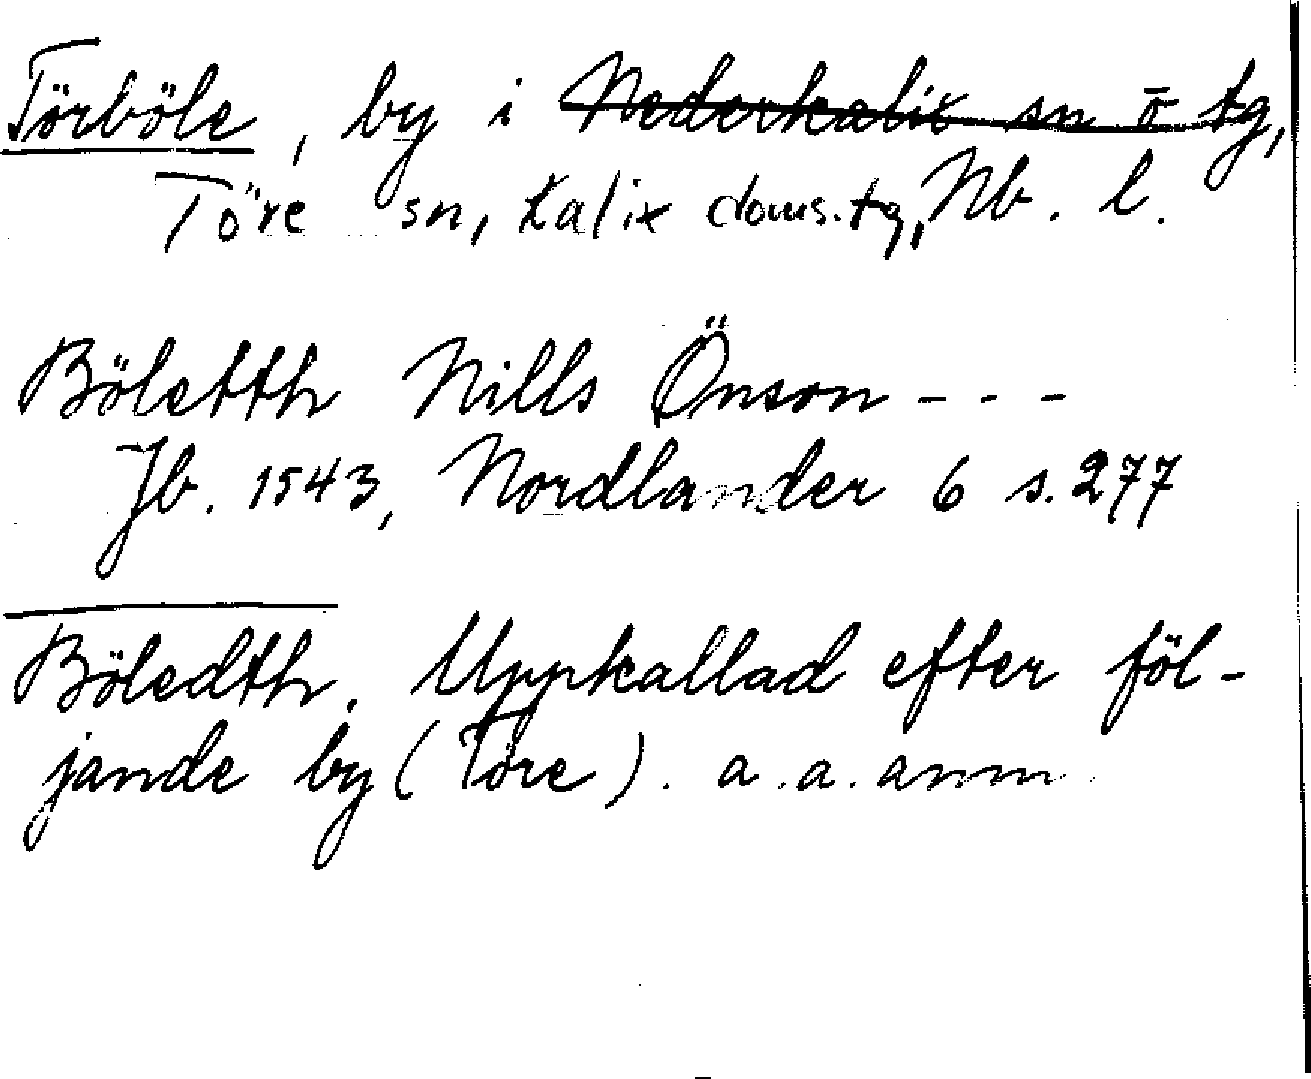 Törböle, by i Nederkalix sn o tg,
Töre sn, Kalix doms.tg, Nb. l.
Böletth Nills Önson - - -
Jb. 1543, Nordlander 6 s. 277
Böledth. Uppkallad efter föl-
jande by (Töre). a.a. anm.